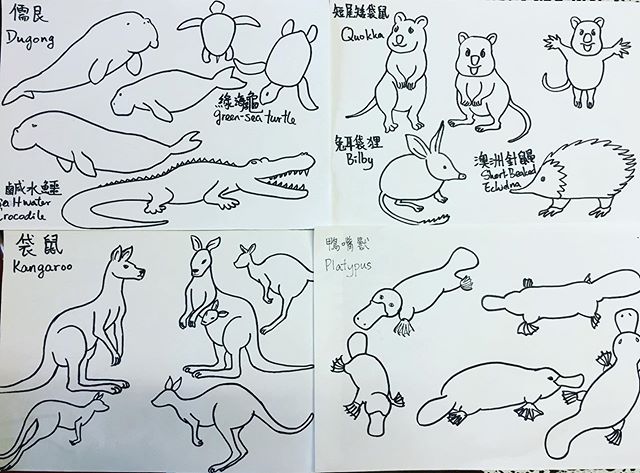 儒艮
Dugong
綠海龜
green-sea turtle
鹹水鱷
Saltwater
Crocodile
短尾矮袋鼠
Quokka
兔耳袋狸
Bilby
澳洲針鼴
Short Beaked
Echidna
袋鼠
Kangaroo
鴨嘴獸
Platypus